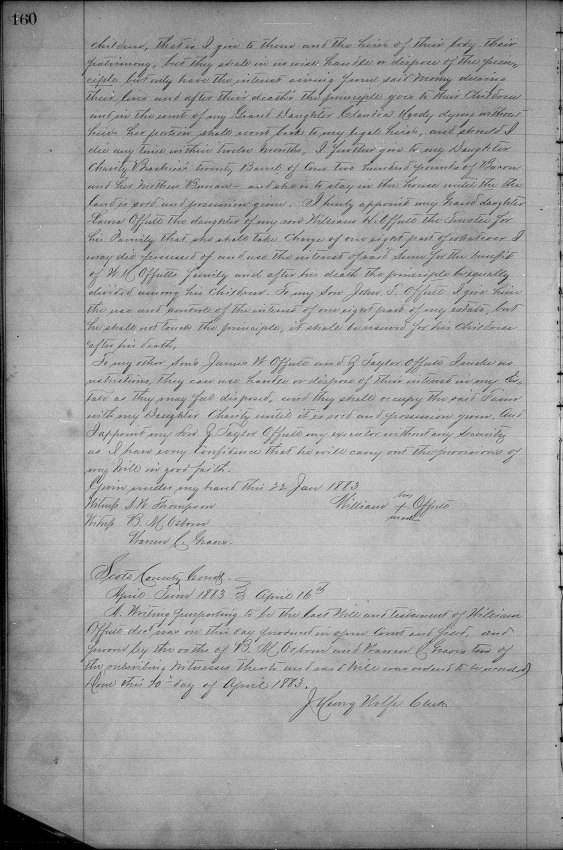 160
children, that is I give to them and the heirs of their body their
patrimony, but they shall in no wise handle or dispose of the prin-
ciple but only have the interest arising from said money during
their lives and after their deaths the principle goes to their Children
and in the event of my Grand Daughter Claudia Hardy dying without
heirs her portion shall revert back to my legal heirs, and should I
die any time within twelve months, I further give to my Daughter
Charity twenty Barrels of Corn two hundred pounds of Bacon
and her mothers Bureau and she is to stay in the house until the
land is sold and possession given. I hereby appoint my Grand daughter
Offutt the daughter of my son William H. Offutt the Trustee for
his Family that she shall take Charge of one eight part of whatever I
may die possessed of and use the interest of said sum for the benefit
of W H Offutts family and after his death the principle be equally
divided among his Children. To my son John T. Offutt I give him
the use and control of the interest of one eight part of my estate, but
he shall not touch the principle, it shall be reserved for his Children
after his death,
To my other sons James W Offutt and Z Taylor Offutt I make no
restrictions, they can use handle or dispose of their interest in my Es-
tate as they may feel disposed, and they shall occupy the said Farm
with my Daughter Charity until it is sold and possession given. And
I appoint my son Z Taylor Offutt my executor without any security
as I have every Confidence that he will carry out the provisions of
my Will in good faith.
Given under my hand this 22 Jan 1883
Witness S. W Thompson William his + mark Offutt
Witness B. M Osborn
Warren C. Graves
Scott County Court
April Term 1883 April 16th
A Writing purporting to be the last Will and testament of William
Offutt decd was on this day produced in open Court and filed, and
proved by the oaths of B. M Osborn and Warren C Graves two of
the subscribing witnesses thereto and said Will was ordered to be recorded
Done this day of April 1883.
J Henry Wolfe Clerk